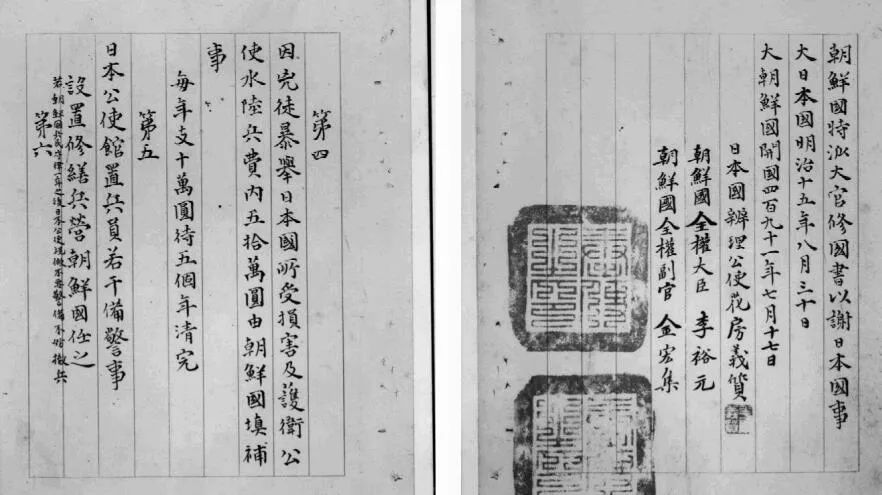 第四
因兇徒暴舉日本國所受損害及護衛公
使水陸兵費內五拾萬圓由朝鮮國填補
事
每年支十萬圓待五個年清完
第五
日本公使館置兵員若干備警事
設置修繕兵營朝鮮國任之
若朝鮮國兵民守律一年之後日本公使視做不要警備不妨撤兵
第六
朝鮮國特派大官修國書以謝日本國事
大日本國明治十五年八月三十日
大朝鮮國開國四百九十一年七月十七日
日本國辨理公使花房義質
朝鮮國全權大臣 李裕元
朝鮮國全權副官 金宏集